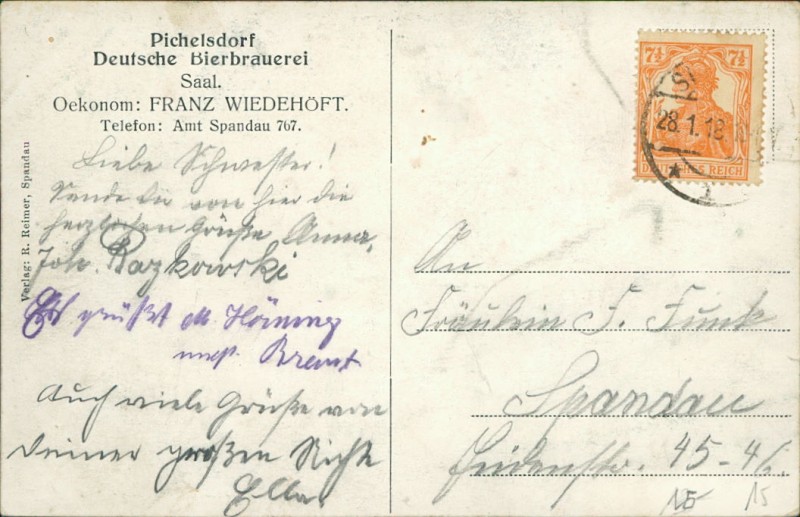 Pichelsdorf
Deutsche Bierbrauerei
Saal.
Oekonom: FRANZ WIEDEHÖFT.
Telefon: Amt Spandau 767.
Verlag: R. Reimer, Spandau
Liebe Schwester!
Sende Dir von hier die
herzlichen Grüße Anna,
Joh. Razkowski
Es grüßt M. Höning
Auch viele Grüße von
Deiner großen Nichte
Ella
7½ 7½
DEUTSCHES REICH
28.1.18
An
Fräulein F. Funk
Spandau
45-4/
15 15